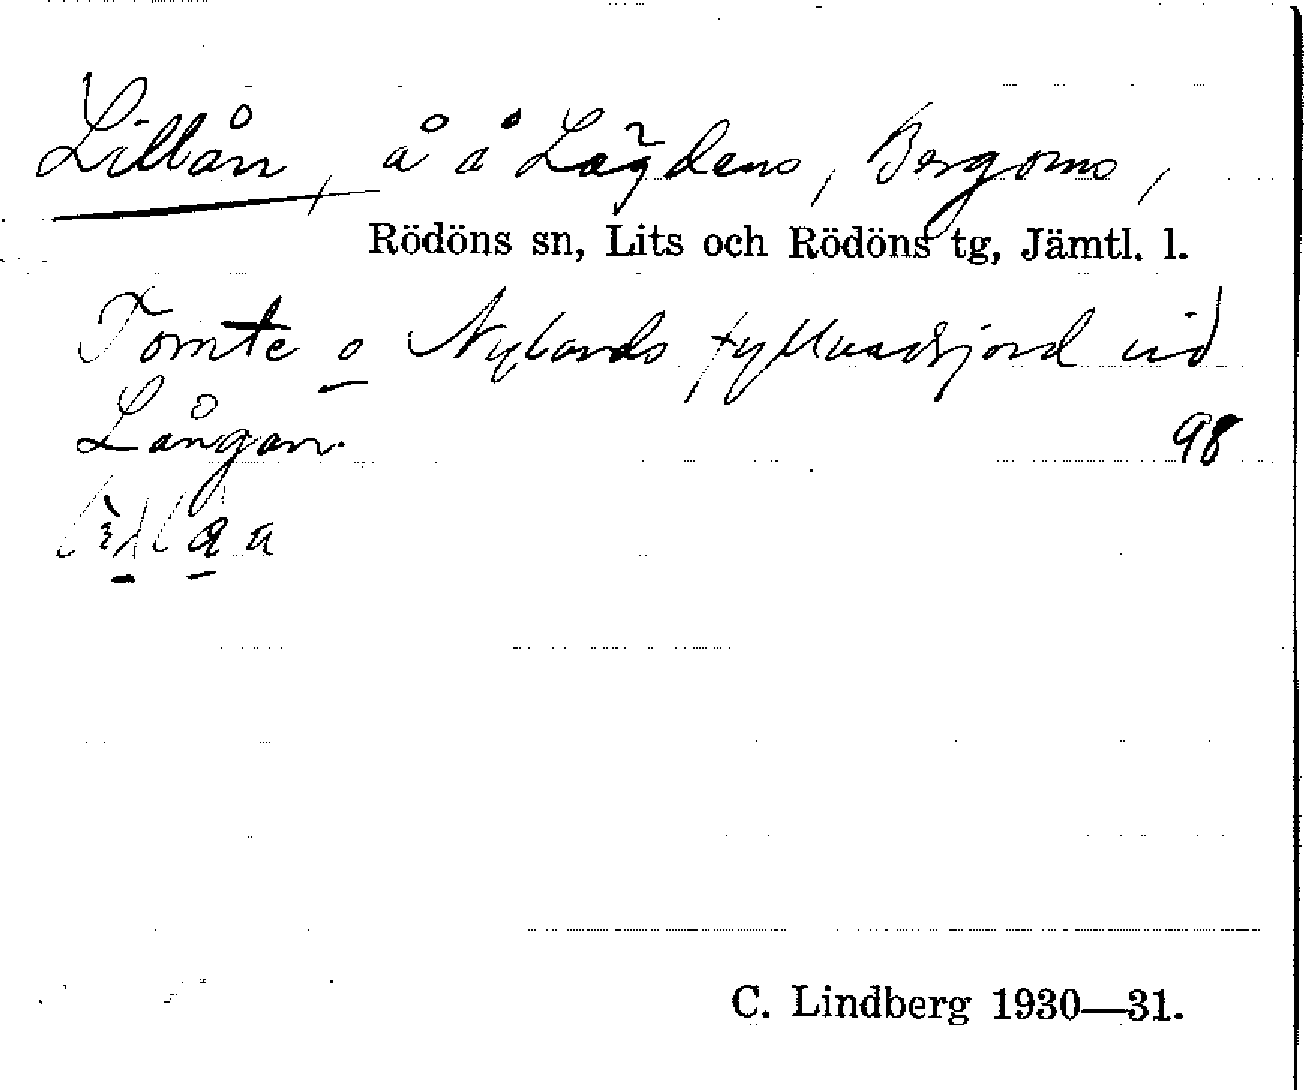 Lillån, å å Lägdens, Bergoms,
Rödöns sn, Lits och Rödöns tg, Jämtl. l.
Tomte o Nylands fyllnadsjord vid
Långan. 98
C. Lindberg 1930—31.